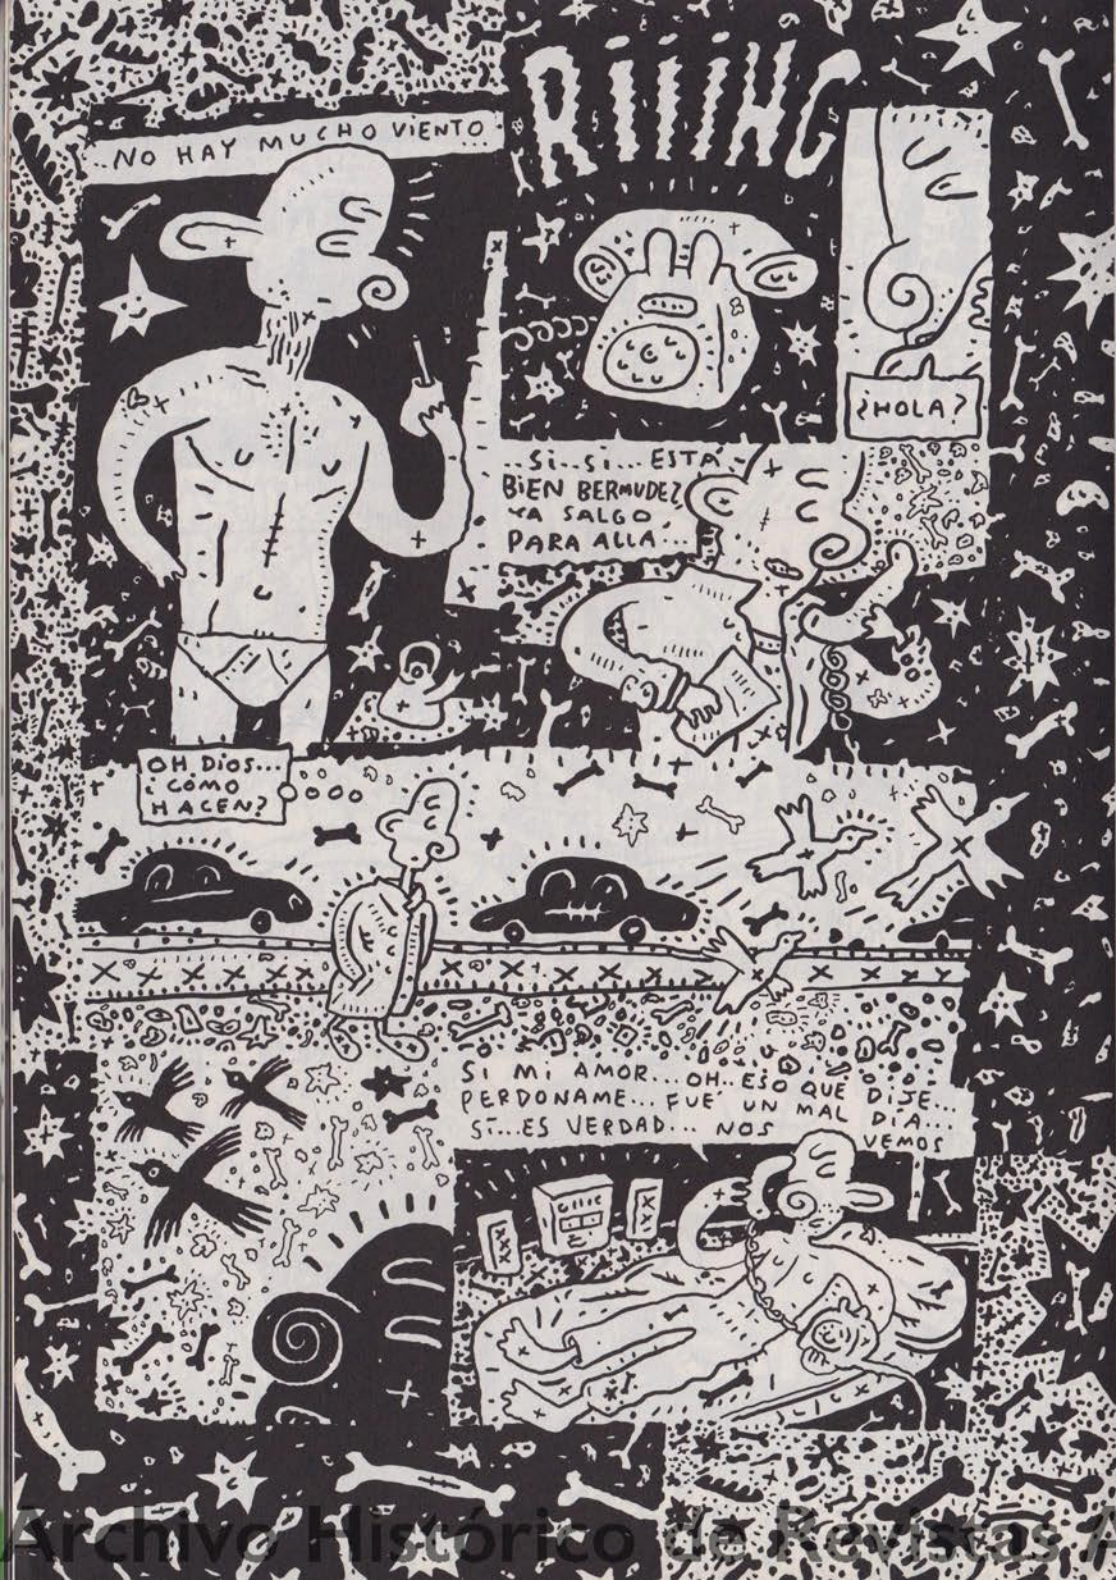 ..NO HAY MUCHO VIENTO...
RiiiNG
¿HOLA?
..Si..Si... ESTÁ
BiEN BERMUDEZ
YA SALGO
PARA ALLA...
OH DiOS...
¿CÓMO
HACEN?
SI Mi AMOR... OH.. ESO QUE DIJE...
PERDONAME... FUÉ UN MAL DÍA...
SÍ...ES VERDAD... NOS
VEMOS
XXX
XXX
Archivo Histórico de Revistas A